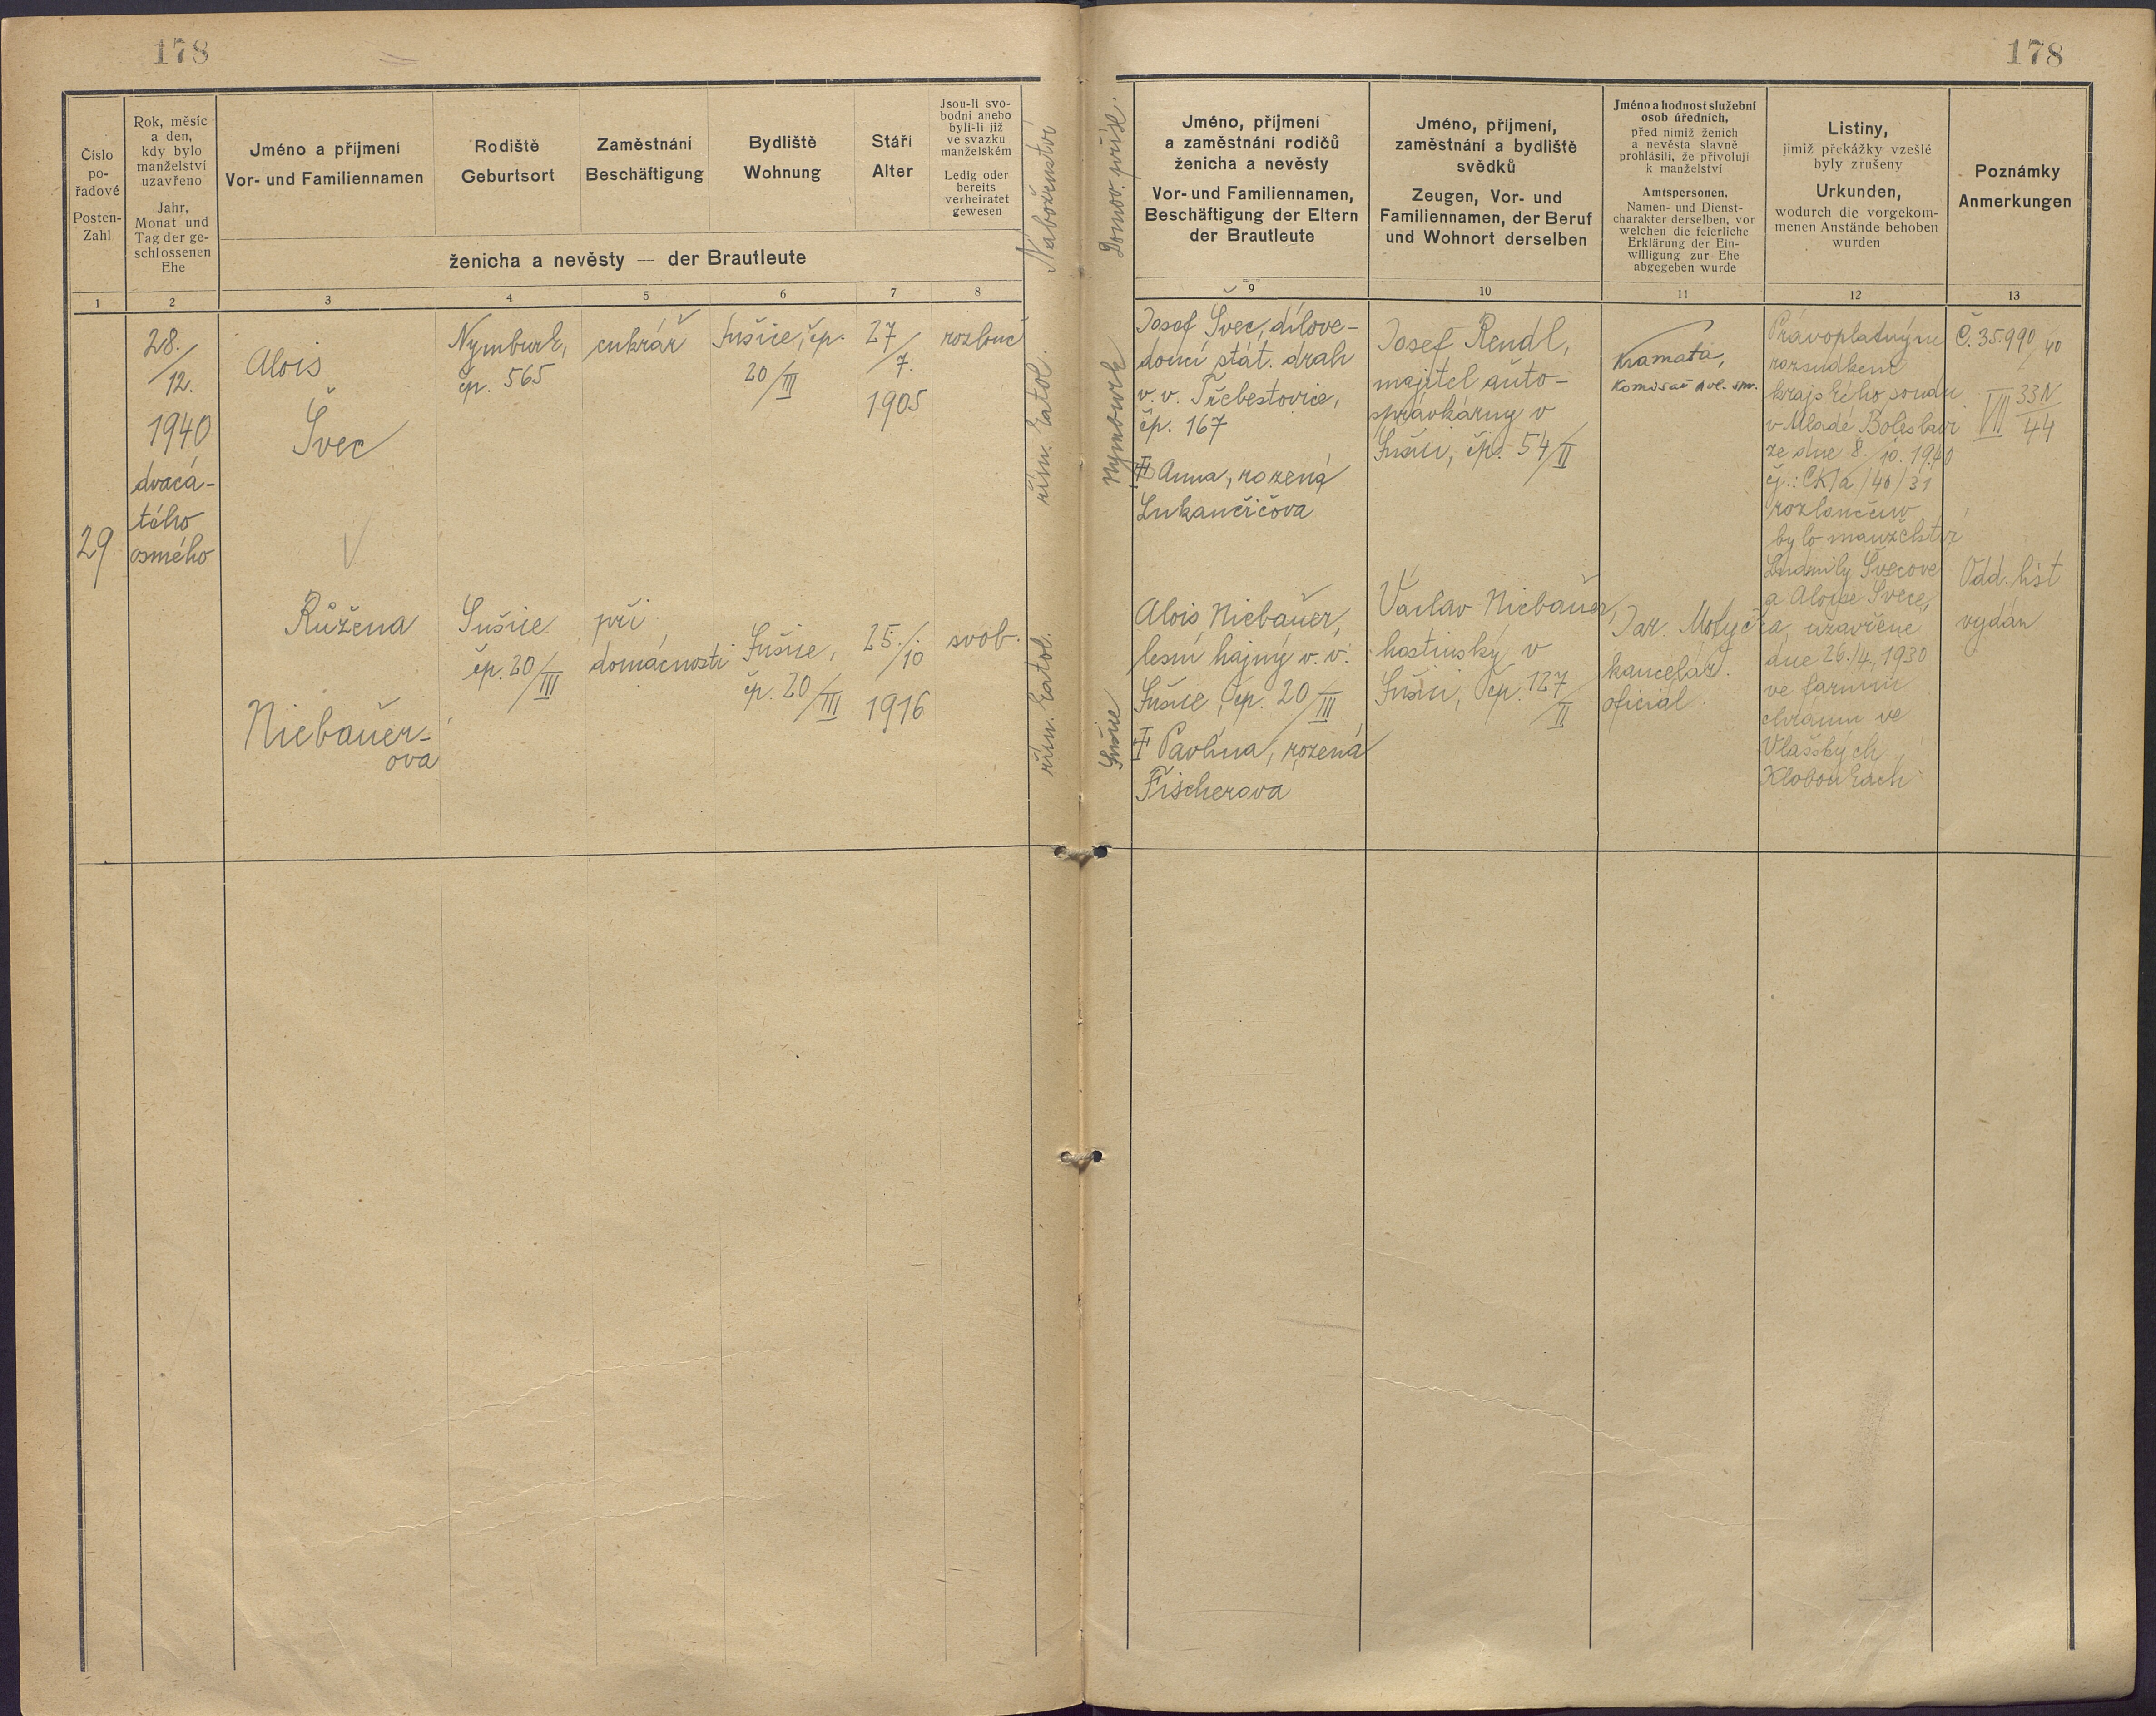 178
178
Číslo
po-
řadové
Posten-
Zahl
Rok, měsíc
a den,
kdy bylo
manželství
uzavřeno
Jahr,
Monat und
Tag der ge-
schlossenen
Ehe
Jméno a příjmení
Vor- und Familiennamen
Rodiště
Geburtsort
Zaměstnání
Beschäftigung
Bydliště
Wohnung
Stáří
Alter
Jsou-li svo-
bodni anebo
byli-li již
ve svazku
manželském
Ledig oder
bereits
verheiratet
gewesen
ženicha a nevěsty — der Brautleute
Náboženství
Domov. přísl.
Jméno, příjmení
a zaměstnání rodičů
ženicha a nevěsty
Vor- und Familiennamen,
Beschäftigung der Eltern
der Brautleute
Jméno, příjmení,
zaměstnání a bydliště
svědků
Zeugen, Vor- und
Familiennamen, der Beruf
und Wohnort derselben
Jméno a hodnost služební
osob úředních,
před nimiž ženich
a nevěsta slavně
prohlásili, že přivolují
k manželství
Amtspersonen,
Namen- und Dienst-
charakter derselben, vor
welchen die feierliche
Erklärung der Ein-
willigung zur Ehe
abgegeben wurde
Listiny,
jimiž překážky vzešlé
byly zrušeny
Urkunden,
wodurch die vorgekom-
menen Anstände behoben
wurden
Poznámky
Anmerkungen
1 2 3 4 5 6 7 8 9 10 11 12 13
29
28./
12.
1940
dvacá-
tého
osmého
Alois
Švec
Nymburk,
čp. 565
cukrář
Sušice, čp.
20/III
27/
7.
1905
rozlouč
řím. katol.
Nymburk
Josef Švec, dílove-
doucí stát. drah
v. v. Třebestovice,
čp. 167
Anna, rozená
Lukančičova
Josef Rendl,
majitel auto-
správkárny v
Sušici, čp. 54/II
Kramata,
komisař pol. spr.
Právoplatným
rozsudkem
krajského soudu
v Mladé Boleslavi
ze dne 8./10. 1940
čj.: CK Ia/40/31
rozloučeno
bylo manželství
Ludmily Švecové
a Aloise Švece,
uzavřené
dne 26./4. 1930
ve farním
chrámu ve
Vlašských
Kloboukách
Č. 35.990/40
VII 33N/44
Odd. list
vydán
Růžena
Niebauer-
ova
Sušice
čp. 20/III
při
domácnosti
Sušice,
čp. 20/III
25./
10
1916
svob.
řím. katol.
Sušice
Alois Niebauer,
lesní hajný v. v.
Sušice, čp. 20/III
Pavlína, rozená
Fischerova
Václav Niebauer,
hostinský v
Sušici, čp. 127/II
Jar. Motyčka,
kancelář.
oficiál